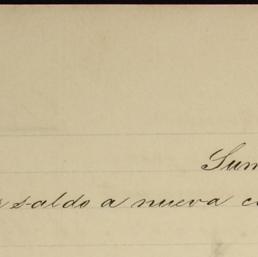 Sum
saldo a nueva c